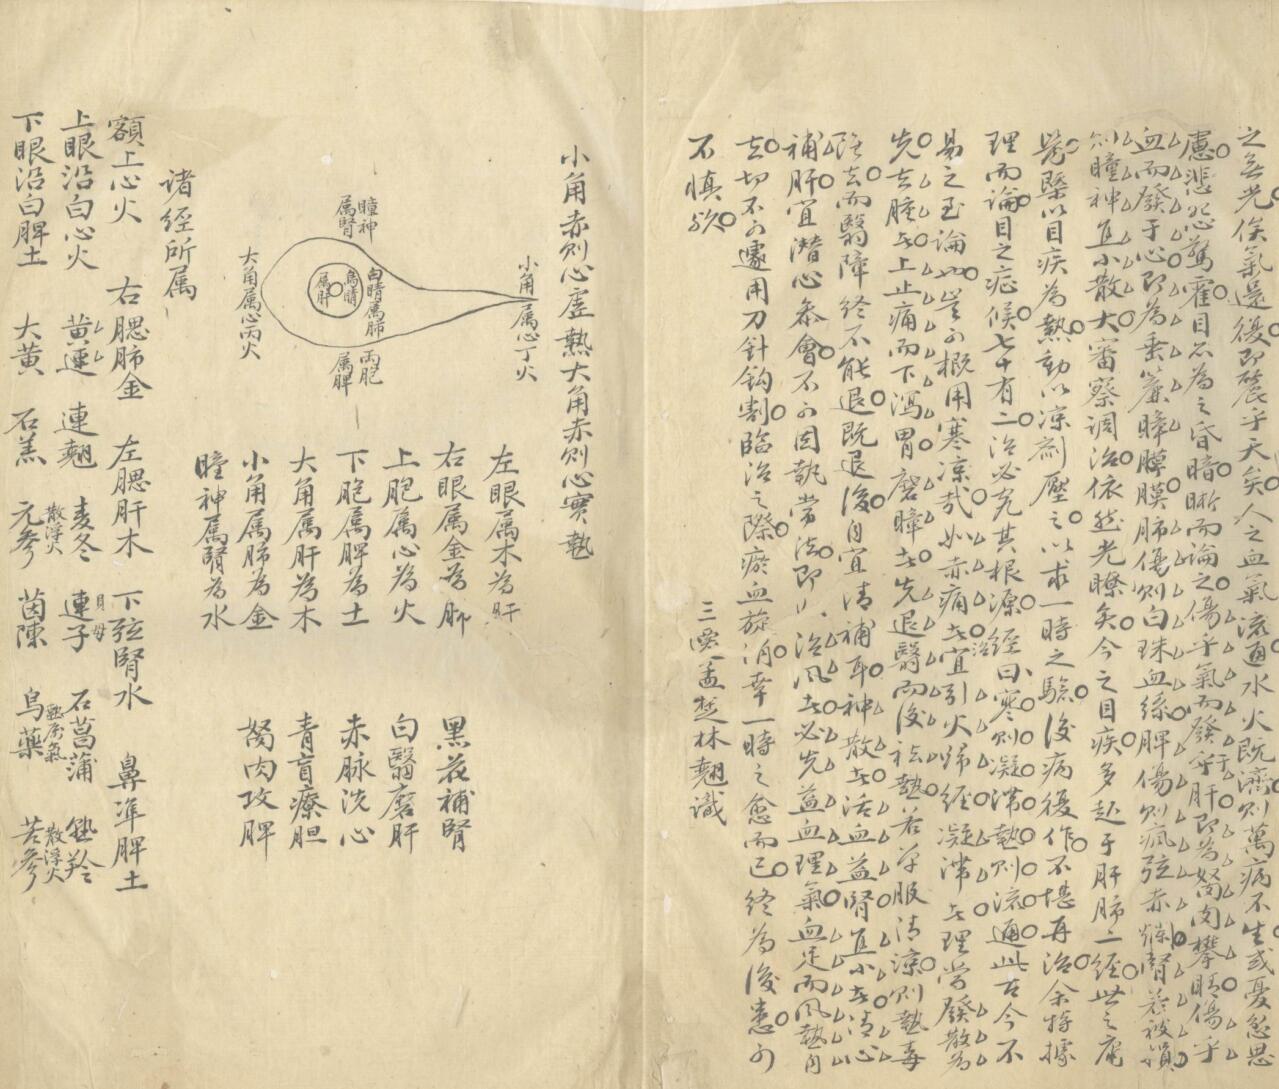 之無光侯氣還後即儼乎天矣人之血氣流通水火既濟則萬病不生或憂忿思
慮悲恐驚霍目必為之昏暗晰而論之傷乎氣而發乎肝即為努肉攀睛傷乎
血而發于心即為垂簾障膜肺傷則白珠血絲脾傷則瘋弦赤爛腎若被損
則瞳神直小散大審察調治依然光瞭矣今之目疾多起于肝肺二經世之庸
醫槩以目疾為熱動以涼劑壓之以求一時之驗後病復作不堪再治余特據
理而論目之症候七十有二治必究其根源經曰寒則凝滯熱則流通此古今不
易之至論也豈可概用寒涼哉如赤痛者宜引火歸經凝滯者理當發散為
先去腫者上止痛而下瀉胃磨障者先退翳而後祛熱若早服清涼則熱毒
雖去而翳障終不能退既退後自宜清補耳神散者活血益腎直小者清心
補肝宜潛心參會不可固執常法即以治風者必先益血理氣血足而風熱自
去切不可遽用刀針鈎割臨治之際瘀血旋消幸一時之愈而已終為後患可
不慎歟
三孟楚林翹識
小角赤則心虛熱大角赤則心實熱
小角属心丁火
瞳神属腎
白睛属肺
烏睛属肝
両胞属脾
大角属心丙火
左眼属木為肝
右眼属金為肺
上胞属心為火
下胞属脾為土
大角属肝為木
小角属肺為金
瞳神属腎為水
黑花補腎
白翳磨肝
赤脉洗心
青盲療胆
努肉攻脾
诸经所属
額上心火 右腮肺金 左腮肝木 下弦腎水 鼻準脾土
上眼沿白心火 黄連 連翹 麦冬散浮火 連子 貝母 石菖蒲 羚
下眼沿白脾土 大黄 石羔 元參 茵陳 烏藥 苦參散浮火